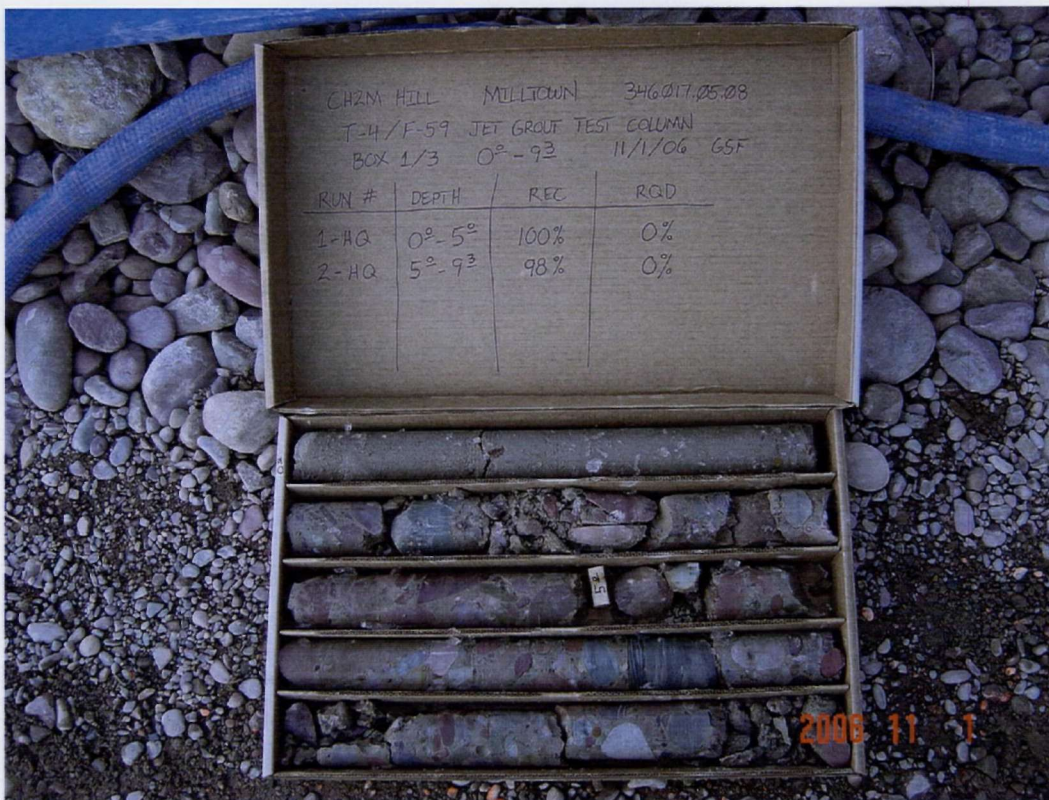 CH2M HILL MILLTOWN 346017.05.08
T-4/F-59 JET GROUT TEST COLUMN
BOX 1/3 0⁰-9³ 11/1/06 GSF
RUN # DEPTH REC RQD
1-HQ 0⁰-5⁰ 100% 0%
2-HQ 5⁰-9³ 98% 0%
5⁰
2006 11 1